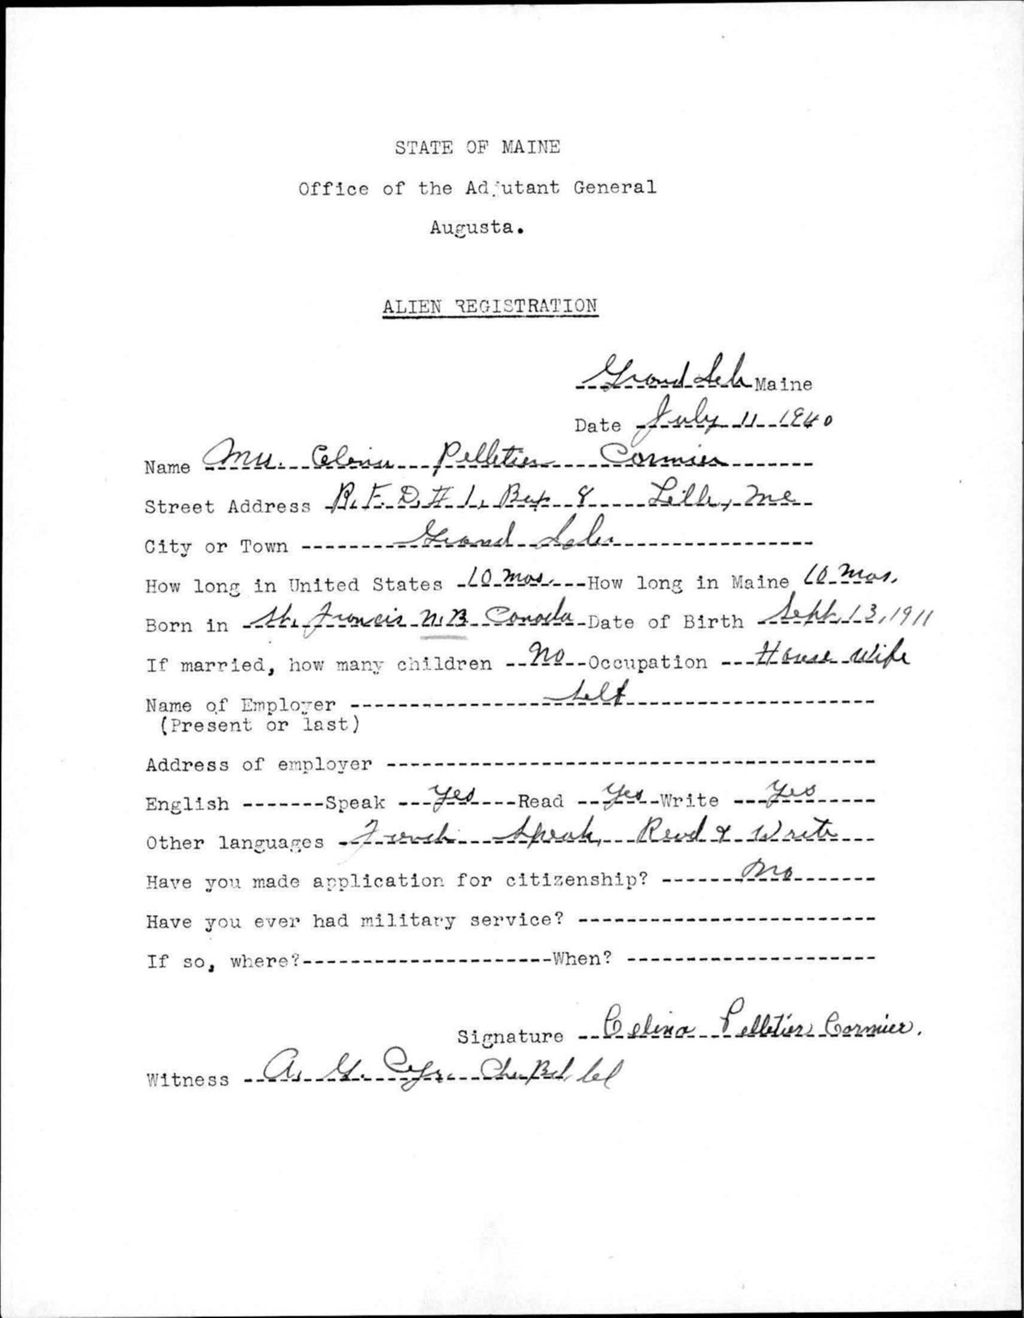 STATE OF MAINE
Office of the Adjutant General
Augusta.
ALIEN REGISTRATION
Grand Isle Maine
Date July 11 1940
Name Mrs. Celina Pelletier Cormier
Street Address R.F.D. # 1, Box 8 Lille, Me
City or Town Grand Isle
How long in United States 10 mos. How long in Maine 10 mos.
Born in St. Francis N.B. Canada Date of Birth Sept. 13, 1911
If married, how many children No Occupation House wife
Name of Employer Self
(Present or last)
Address of employer
English Speak Yes Read Yes Write Yes
Other languages French Speak, Read & Write
Have you made application for citizenship? No
Have you ever had military service?
If so, where? When?
Signature Celina Pelletier Cormier.
Witness A. G. Cyr.